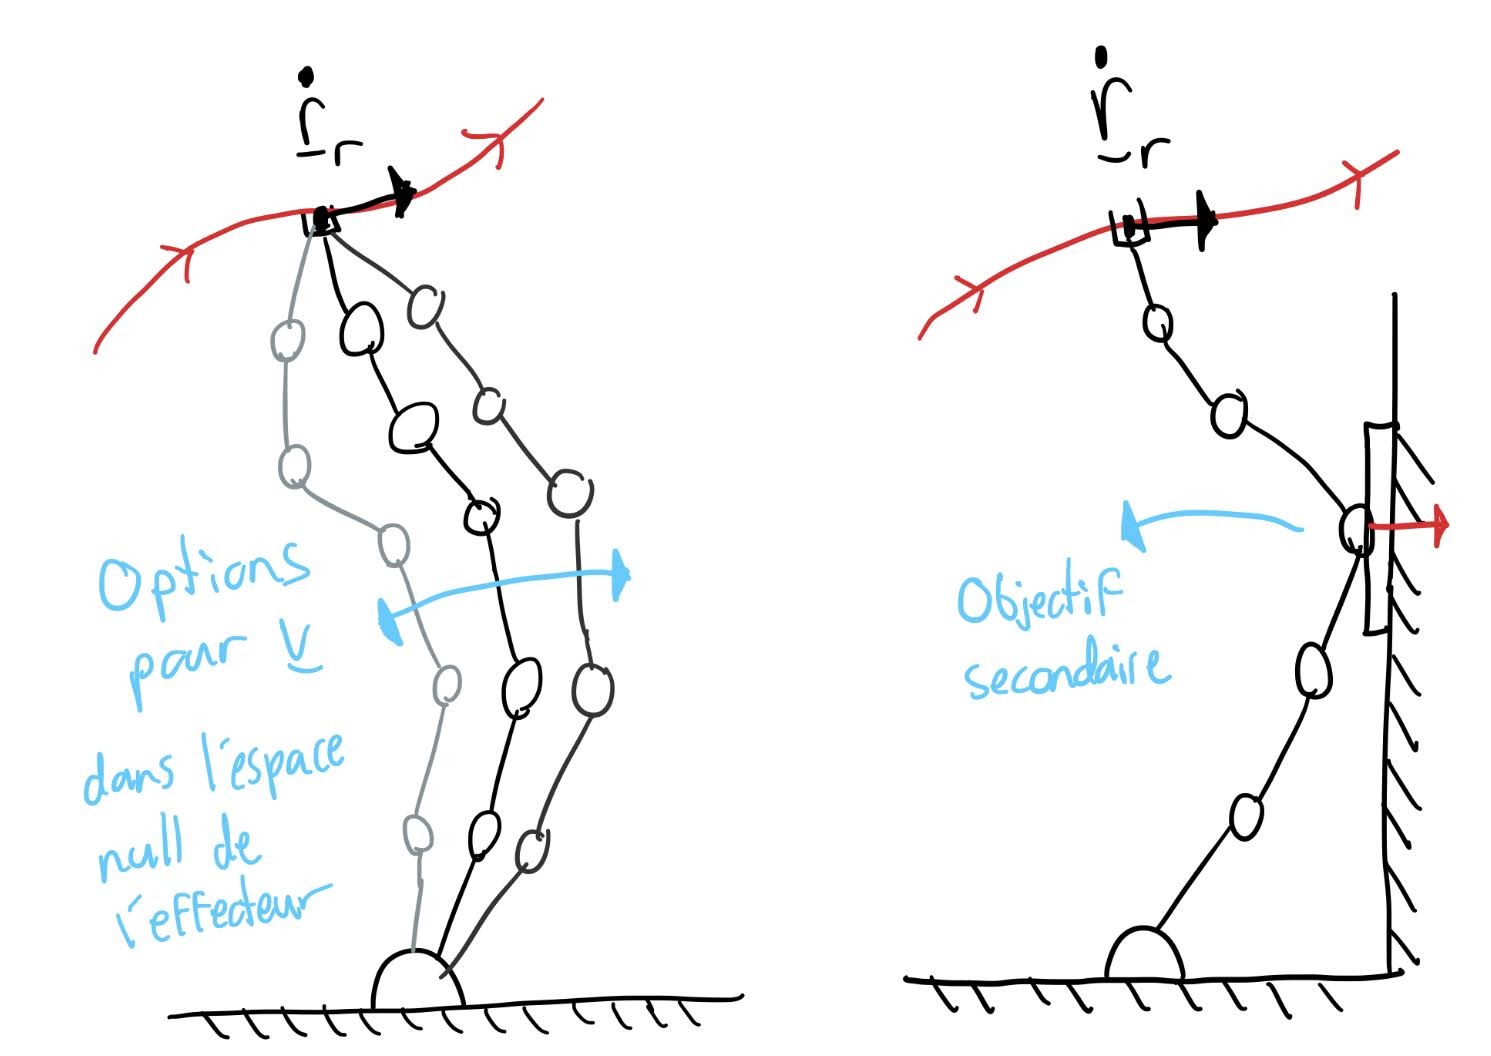 ṙ_r
Options
pour v
dans l'espace
null de
l'effecteur
ṙ_r
Objectif
secondaire